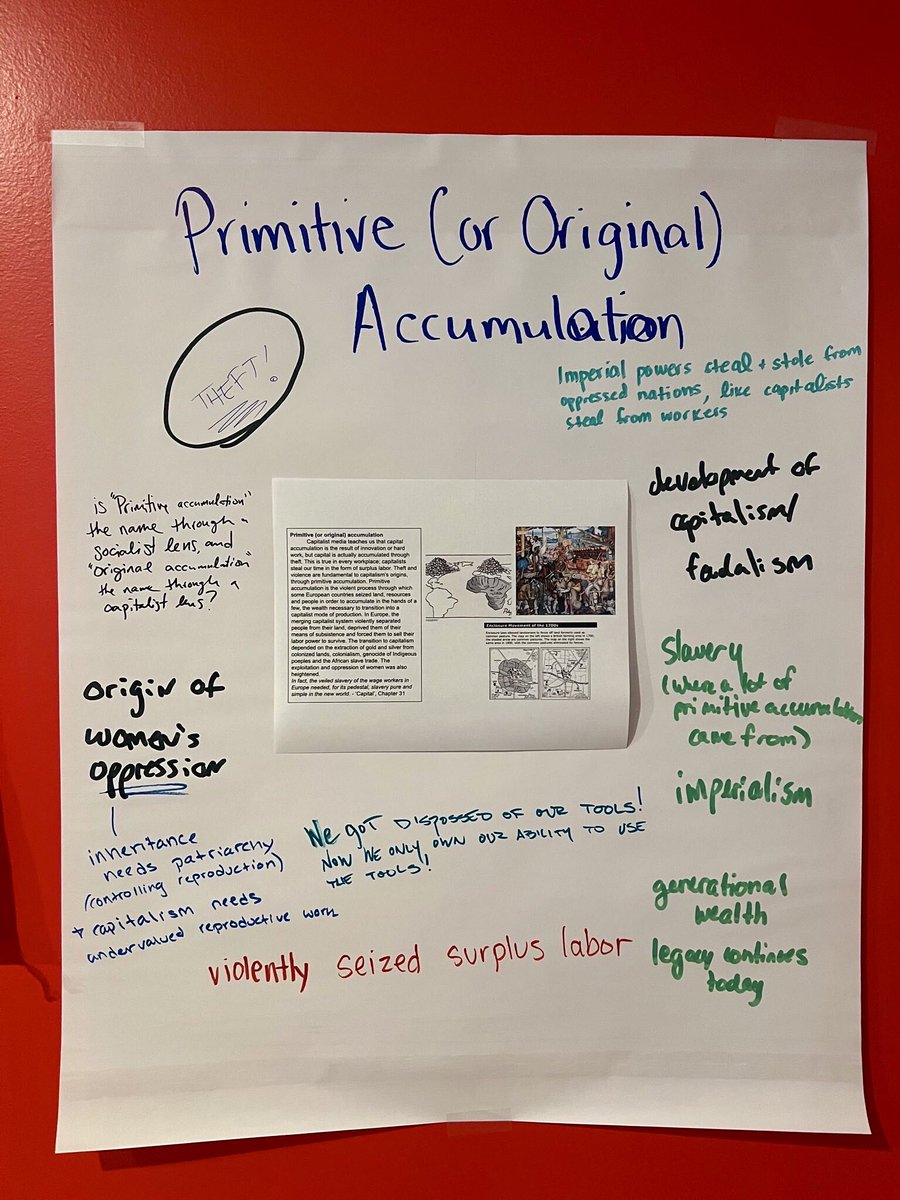 Primitive (or Original)
Accumulation
THEFT!
Imperial powers steal + stole from
oppressed nations, like capitalists
steal from workers
is "Primitive accumulation"
the name through a
socialist lens, and
"Original accumulation"
the name through a
capitalist lens?
Primitive (or original) accumulation
Capitalist media teaches us that capital
accumulation is the result of innovation or hard
work, but capital is actually accumulated through
theft. This is true in every workplace; capitalists
steal our time in the form of surplus labor. Theft and
violence are fundamental to capitalism's origins,
through primitive accumulation. Primitive
accumulation is the violent process through which
some European countries seized land, resources
and people in order to accumulate in the hands of a
few, the wealth necessary to transition into a
capitalist mode of production. In Europe, the
merging capitalist system violently separated
people from their land, deprived them of their
means of subsistence and forced them to sell their
labor power to survive. The transition to capitalism
depended on the extraction of gold and silver from
colonized lands, colonialism, genocide of Indigenous
poeples and the African slave trade. The
exploitation and oppression of women was also
heightened.
In fact, the veiled slavery of the wage workers in
Europe needed, for its pedestal, slavery pure and
simple in the new world. - 'Capital', Chapter 31
Enclosure Movement of the 1700s
development of
capitalism/
feudalism
slavery
(where a lot of
primitive accumulation
came from)
imperialism
generational
wealth
legacy continues
today
origin of
women's
oppression
inheritance
needs patriarchy
(controlling reproduction)
+ capitalism needs
undervalued reproductive work
We GOT DISPOSSED OF OUR TOOLS!
NOW WE ONLY OWN OUR ABILITY TO USE
THE TOOLS!
violently seized surplus labor